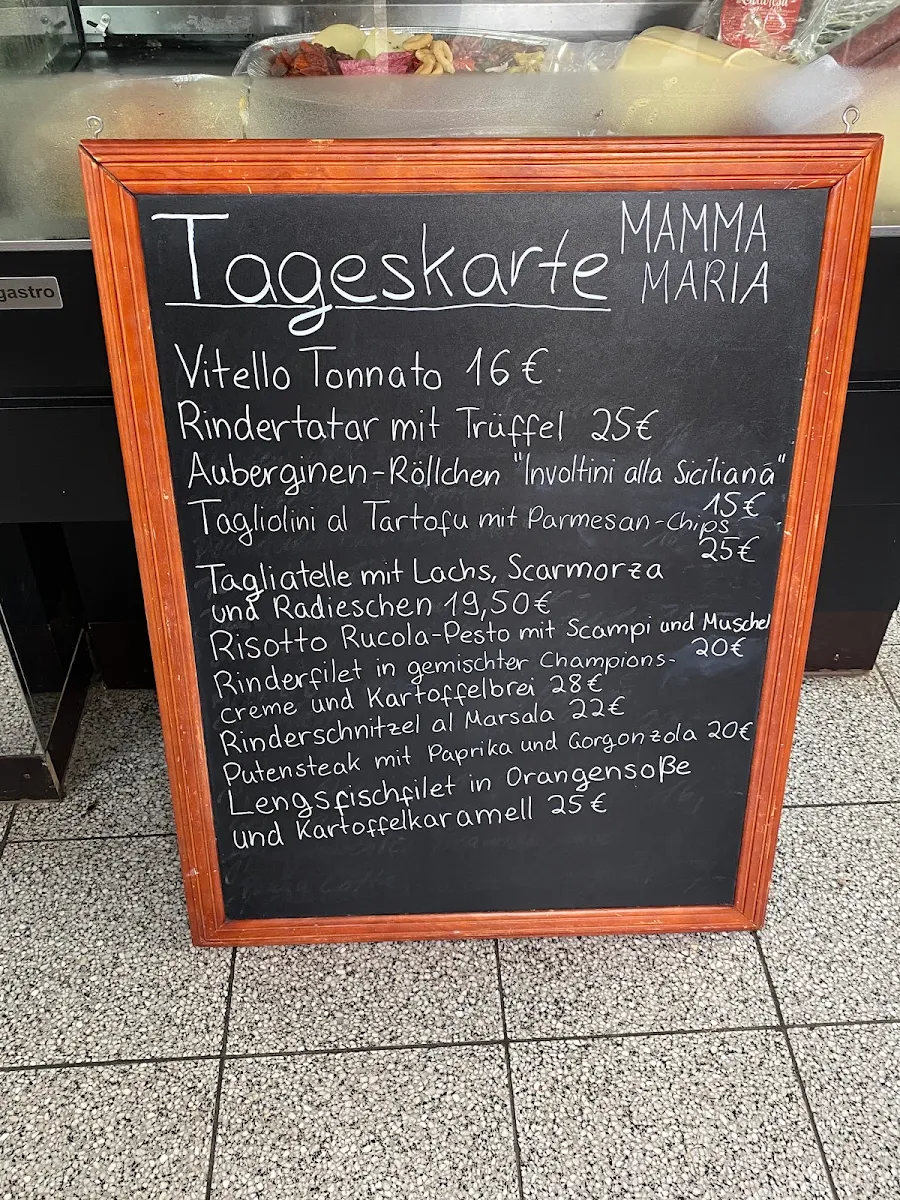 Tageskarte
MAMMA
MARIA
gastro
Vitello Tonnato 16€
Rindertatar mit Trüffel 25€
Auberginen-Röllchen "Involtini alla Siciliana"
15€
Tagliolini al Tartofu mit Parmesan-Chips
25€
Tagliatelle mit Lachs, Scarmorza
und Radieschen 19,50€
Risotto Rucola-Pesto mit Scampi und Muschel
20€
Rinderfilet in gemischter Champions-
creme und Kartoffelbrei 28€
Rinderschnitzel al Marsala 22€
Putensteak mit Paprika und Gorgonzola 20€
Lengsfischfilet in Orangensoße
und Kartoffelkaramell 25€